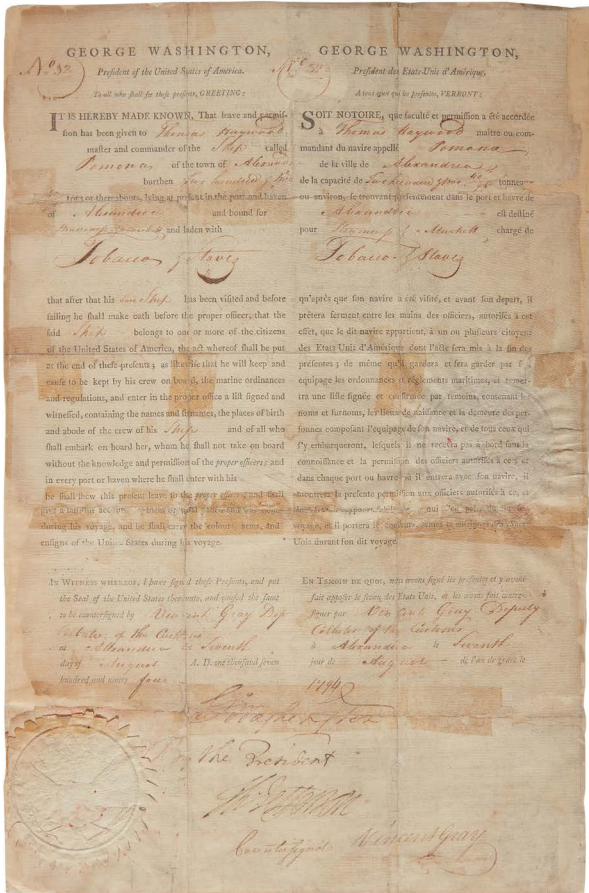 GEORGE WASHINGTON,
President of the United States of America.
To all who shall see these presents, GREETING:
IT IS HEREBY MADE KNOWN, That leave and permis-
sion has been given to Thomas Haywood
master and commander of the Ship called
Pomona of the town of
burthen two hundred &
tons or thereabouts, lying at present in the port and haven
of Alexandria and bound for
and laden with
Tobacco & Staves
that after that his said Ship has been visited and before
sailing he shall make oath before the proper officer, that the
said Ship belongs to one or more of the citizens
of the United States of America, the act whereof shall be put
at the end of these presents; as likewise that he will keep and
cause to be kept by his crew on board, the marine ordinances
and regulations, and enter in the proper office a list signed and
witnessed, containing the names and sirnames, the places of birth
and abode of the crew of his Ship and of all who
shall embark on board her, whom he shall not take on board
without the knowledge and permission of the proper officers; and
in every port or haven where he shall enter with his
he shall shew this present leave to the proper officers and shall
give a faithful account
during his voyage, and he shall carry the colours, arms, and
ensigns of the United States during his voyage.
IN WITNESS WHEREOF, I have signed these Presents, and put
the Seal of the United States thereunto, and caused the same
to be countersigned by Vincent Gray Dep
Collector of the Customs
at Alexandria the Seventh
day of August A. D. one thousand seven
hundred and ninety four
GEORGE WASHINGTON,
President des Etats-Unis d'Amérique,
A tous ceux qui les présentes, VERRONT:
SOIT NOTOIRE, que faculté et permission a été accordée
à Thomas Haywood maître ou com-
mandant du navire appellé Pomona
de la ville de Alexandria
de la capacité de tonneaux
ou environ, se trouvant présentement dans le port et havre de
Alexandria est destiné
pour chargé de
Tobacco & Staves
qu'après que son navire a été visité, et avant son depart, il
prêtera serment entre les mains des officiers, autorisés à cet
effet, que le dit navire appartient, à un ou plusieurs citoyens
des Etats Unis d'Amérique dont l'acte sera mis à la fin des
présentes; de même qu'il gardera et fera garder par
équipage les ordonnances et réglements maritimes, et
une liste signée et confirmée par témoins, contenant les
noms et surnoms, les lieux de naissance et la demeure des per-
sonnes composant l'equipage de son navire, et de tous ceux qui
s'y embarqueront, lesquels il ne recevra pas à bord sans la
connoissance et la permission des officiers autorisés à ce; et
dans chaque port ou havre où il entrera avec son navire, il
montrera la présente permission aux officiers autorisés à ce, et
voyage, et il portera les couleurs, armes et enseignes des Etats
Unis durant son dit voyage.
EN TEMOIN DE QUOI, nous avons signé les présentes et y avons
fait apposer le sceau des Etats Unis, et les avons fait contre-
signer par Vincent Gray Deputy
Collector of the Customs
à Alexandria le Seventh
jour de August de l'an de grace le
1794
By the President
Countersigned Vincent Gray